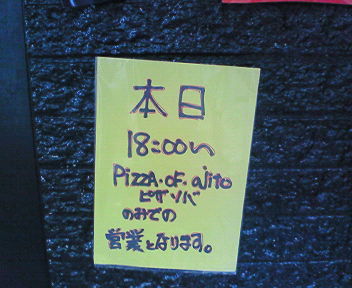 本日
18:00〜
PizzA・OF・ajito
ピザソバ
のみでの
営業となります。